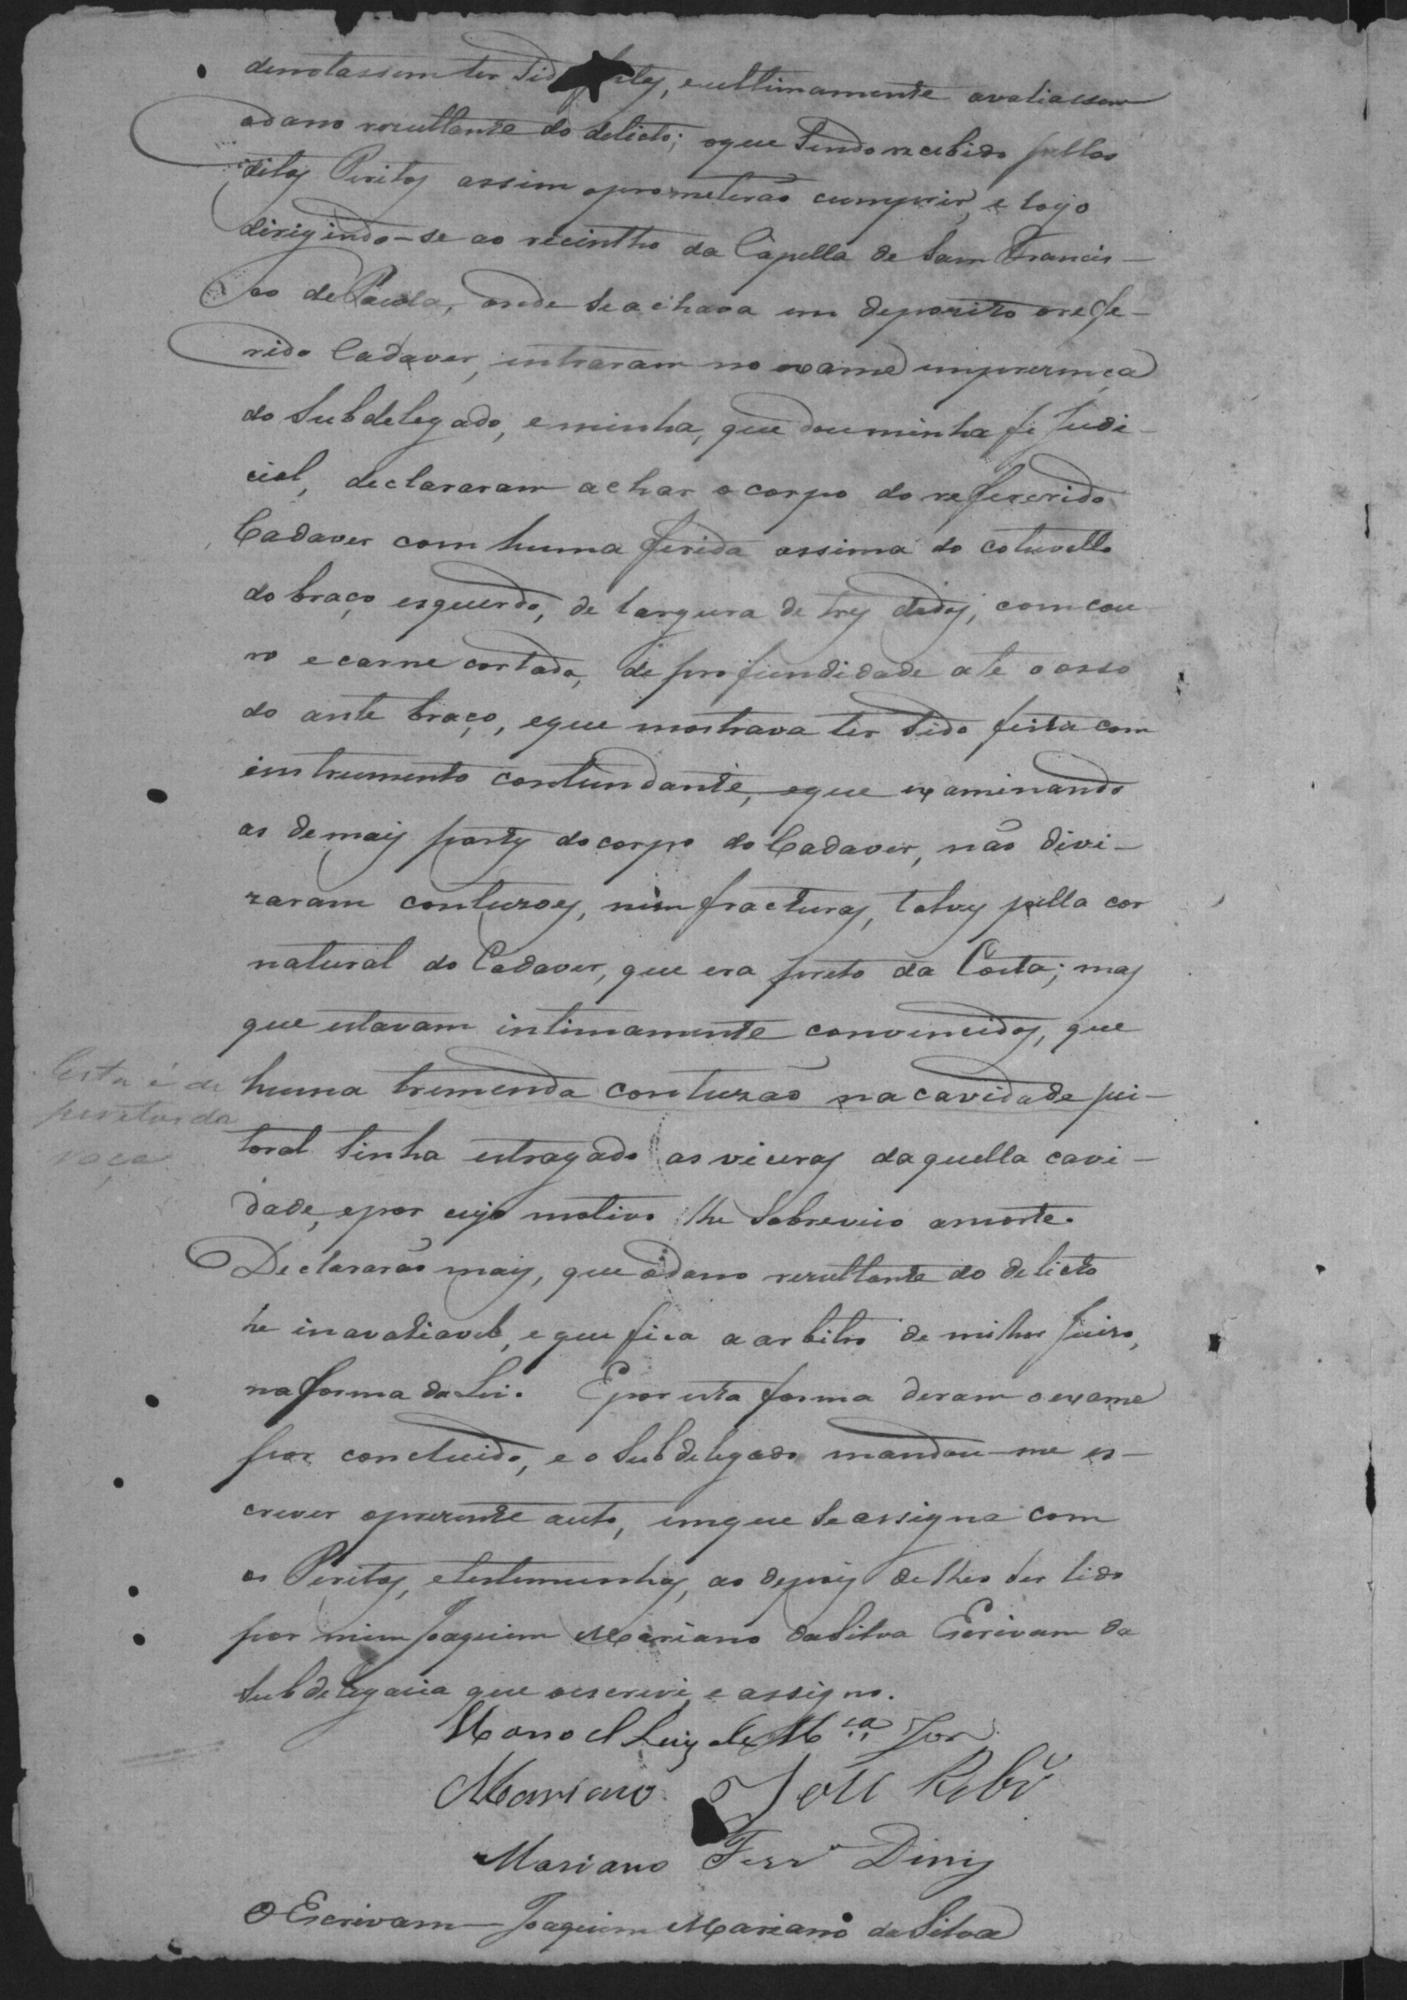 denotassem ter sido feitas, e ultimamente avaliassem
odano rezultante do delicto; oque sendo recebido pellos
ditos Peritos assim oprometerão cumprir, e logo
dirigindo-se ao recintho da Capella de Sam Francis-
co de Paula, onde se achava em deposito orefe-
rido Cadaver, entraram no exame empresença
do Subdelegado, e minha, que dou minha fé Judi-
cial, declararam achar o corpo do refererido
Cadaver com huma ferida assima do cotuvello
do braço esquerdo, de largura de trez dedos, com cou-
ro e carne cortada, de profundidade até o osso
do ante braço, eque mostrava ter sido feita com
instrumento contundante, eque examinando
as demais partes docorpo do Cadaver, não divi-
zaram contuzoes, nem fracturas, talvez pella cor
natural do Cadaver, que era preto da Costa; mas
que estavam intimamente convencidos, que
huma tremenda contuzaõ na cavidade pei-
toral tinha estragado as viceras daquella cavi-
dade, epor cujo motivo lhe sobreveio amorte.
Declararão mais, que odano rezultante do delicto
he inavaliavel, e que fica a arbitro de milhor Juizo,
na forma da Lei. Epor esta forma deram o exame
por concluido, e o Subdelegado mandou-me es-
crever oprezente auto, emque se assigna com
os Peritos, etestemunhas, ao depois delhes ser lido
por mim Joaquim Mariano daSilva Escrivam da
Subdelegacia que oescrevi, e assigno.
Manoel Luiz de M.ca Jor
Mariano José Ribr.o
Mariano Ferr.a Diniz
O Escrivam Joaquim Mariano da Silva
Esta é de
peritos da
roça